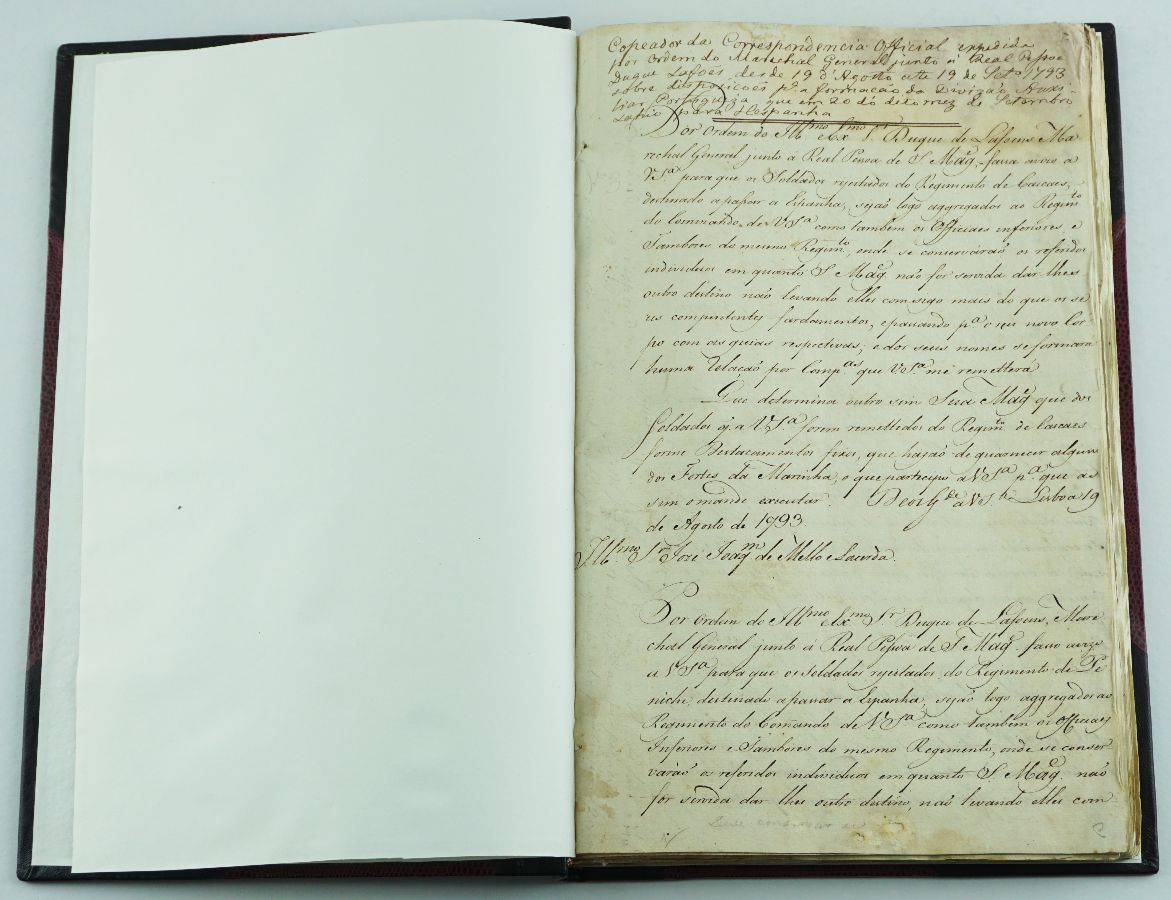 Copeador da Correspondencia Official expedida
por Ordem do Marechal General junto á Real Pessoa
Duque Lafões, desde 19 d'Agosto até 19 de Setº 1793
sobre disposições pª a formação da Divizão Auxi-
liar Portugueza que em 20 do dito mez de Setembro
para Hespanha
Por Ordem do Illmo e Exmo Sr. Duque de Lafoens Ma
rechal General junto á Real Pessoa de S. Magᵉ, faço avizo a
VSª para que os Soldados rejeitados do Regimento de Cascaes,
destinado a passar a Espanha, sejaõ logo aggregados ao Regimto
do Commando de VSª como tambem os Officiaes inferiores, e
Tambores do mesmo Regimto, onde se conservaráõ os referidos
individuos em quanto S. Magᵉ não for servida dar lhes
outro destino naõ levando elles com sigo mais do que os se
us competentes fardamentos, e passando pª o seu novo Cor
po com as guias respectivas; e dos seus nomes se formará
huma relaçaõ por Compas que VSª me remetterá
Que determina outro sim Sua Magᵉ que dos
Soldados q. a VSª forem remettidos do Regimto de Cascaes
forme Destacamentos fixos, que hajaõ de guarnecer alguns
dos Fortes da Marinha, o que participo a VSª pª que as
sim o mande executar. Deos Gde a VSª Lisboa 19
de Agosto de 1793.
Illmo Sr. Jozé Joaqm de Mello e Lacerda.
Por Ordem do Illmo e Exmo Sr Duque de Lafoens, Mare
chal General junto á Real Pessoa de S. Magᵉ faço avizo
a VSª para que os Soldados rejeitados do Regimento de Pe
niche, destinado a passar a Espanha, sejaõ logo aggregados ao
Regimento do Comando de VSª como tambem os Officiaes
Inferiores e Tambores do mesmo Regimento, onde se conser
varáõ os referidos individuos em quanto S. Magᵉ naõ
for servida dar lhes outro destino, naõ levando elles com-